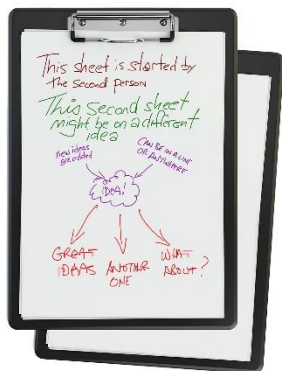 This sheet is started by
the second person
This second sheet
might be on a different
idea
new ideas
are added
CAN BE IN A LINE
OR ANYWHERE
IDEA!
GREAT
IDEAS
ANOTHER
ONE
WHAT
ABOUT?